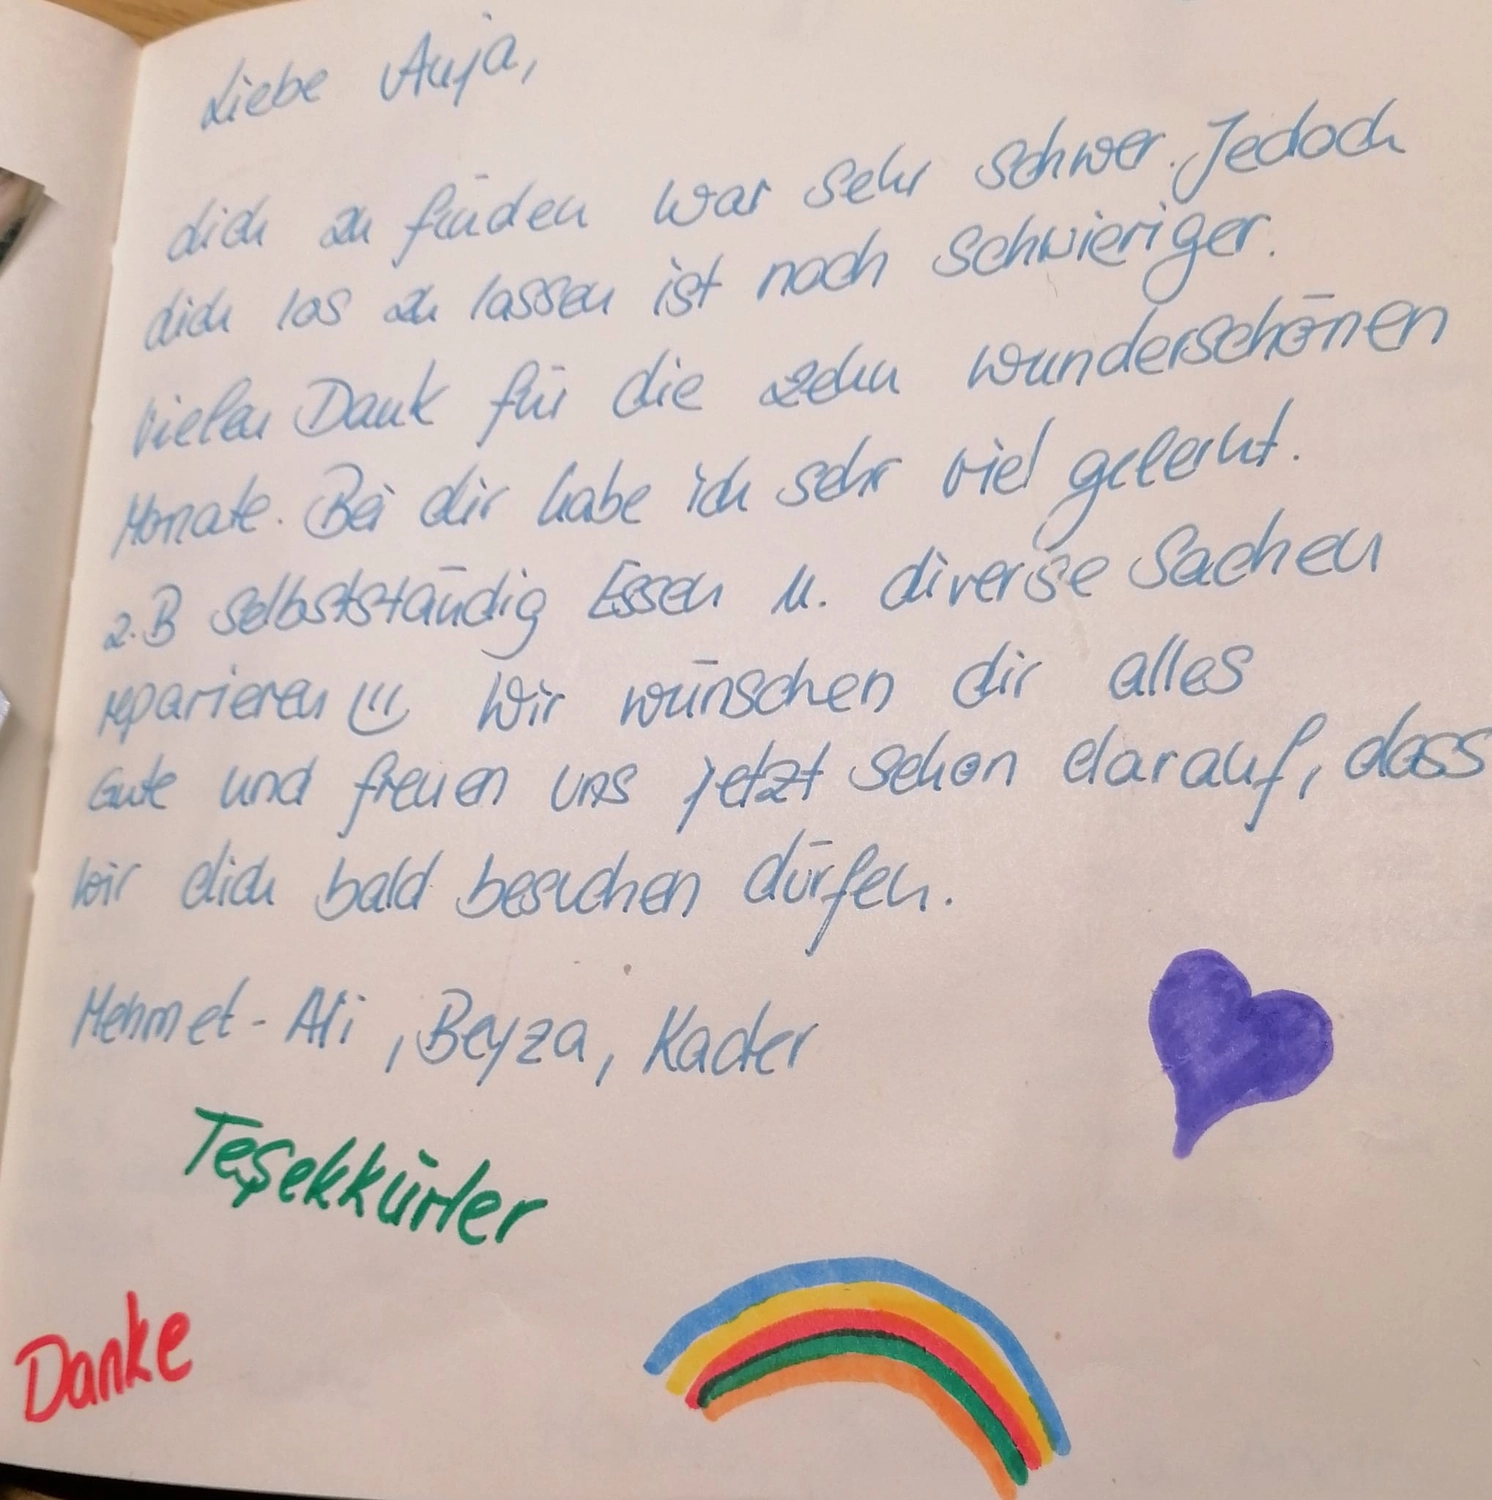 Liebe Anja,
dich zu finden war sehr schwer. Jedoch
dich los zu lassen ist noch schwieriger.
Vielen Dank für die zehn wunderschönen
Monate. Bei dir habe ich sehr viel gelernt.
z.B selbstständig Essen u. diverse Sachen
reparieren Wir wünschen dir alles
Gute und freuen uns jetzt schon darauf, dass
wir dich bald besuchen dürfen.
Mehmet-Ali, Beyza, Kader
Teşekkürler
Danke